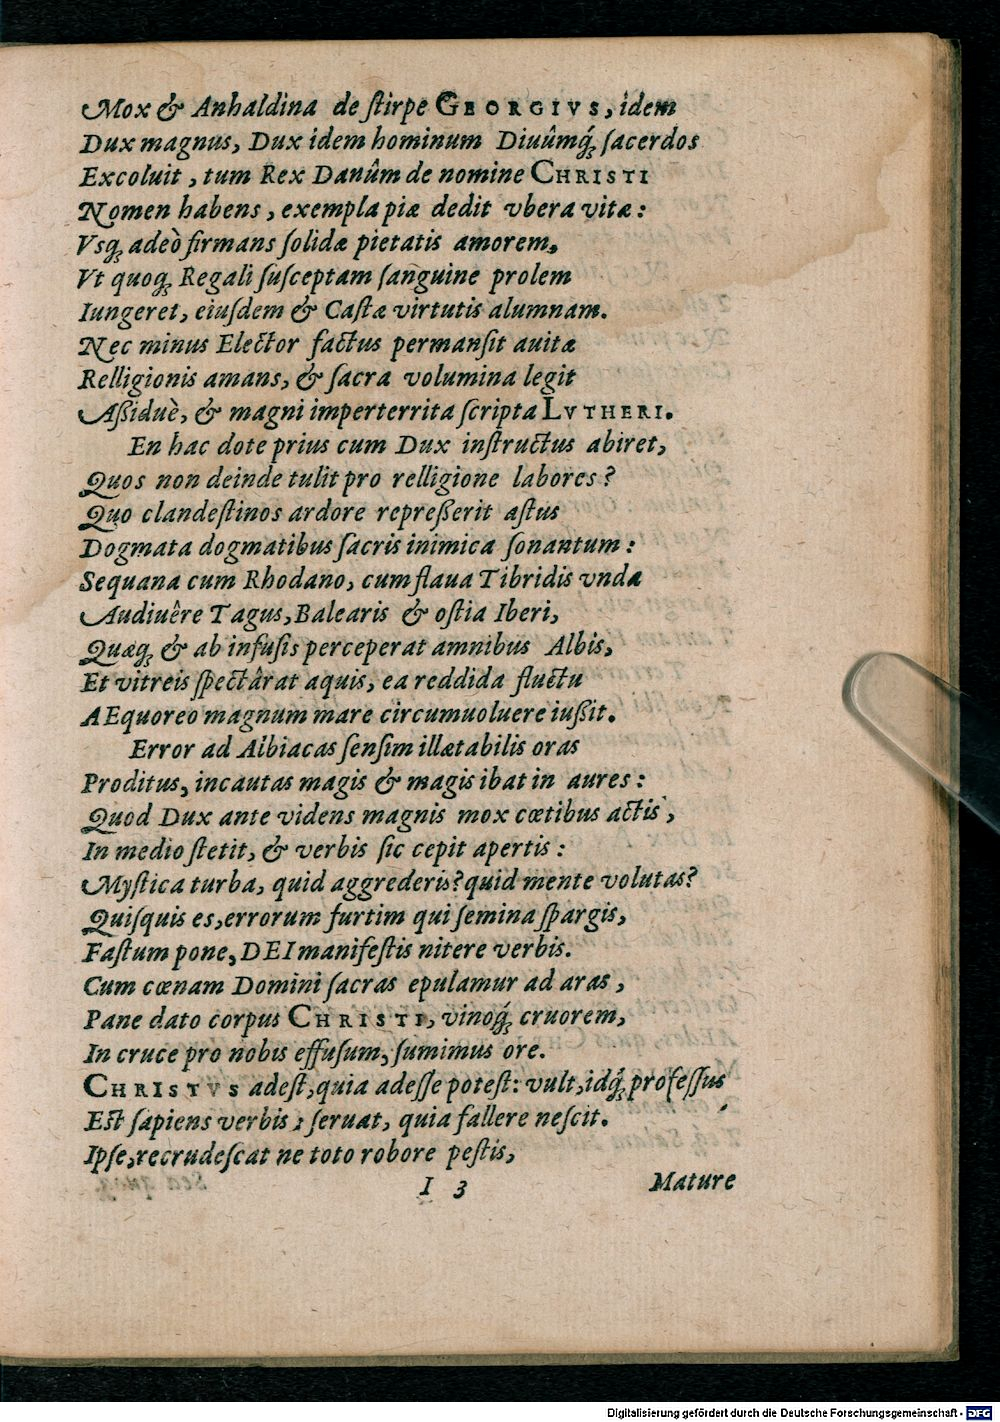 Mox & Anhaldina de ſtirpe GEORGIVS, idem
Dux magnus, Dux idem hominum Diuûmq́ꝫ ſacerdos
Excoluit, tum Rex Danûm de nomine CHRISTI
Nomen habens, exempla piæ dedit vbera vitæ:
Vsqꝫ adeò firmans ſolidæ pietatis amorem,
Vt quoqꝫ Regali ſuſceptam ſanguine prolem
Iungeret, eiuſdem & Caſtæ virtutis alumnam.
Nec minus Elector factus permanſit auitæ
Relligionis amans, & ſacra volumina legit
Aßiduè, & magni imperterrita ſcripta LVTHERI.
En hac dote prius cum Dux inſtructus abiret,
Quos non deinde tulit pro relligione labores?
Quo clandeſtinos ardore repreßerit aſtus
Dogmata dogmatibus ſacris inimica ſonantum:
Sequana cum Rhodano, cum flaua Tibridis vnda
Audiuêre Tagus, Balearis & oſtia Iberi,
Quæqꝫ & ab infuſis perceperat amnibus Albis,
Et vitreis ſpectârat aquis, ea reddida fluctu
AEquoreo magnum mare circumuoluere iußit.
Error ad Albiacas ſenſim illætabilis oras
Proditus, incautas magis & magis ibat in aures:
Quod Dux ante videns magnis mox cœtibus actis,
In medio ſtetit, & verbis ſic cepit apertis:
Myſtica turba, quid aggrederis? quid mente volutas?
Quiſquis es, errorum furtim qui ſemina ſpargis,
Faſtum pone, DEI manifeſtis nitere verbis.
Cum cœnam Domini ſacras epulamur ad aras,
Pane dato corpus CHRISTI, vinoq́ꝫ cruorem,
In cruce pro nobis effuſum, ſumimus ore.
CHRISTVS adeſt, quia adeſſe poteſt: vult, idq́ꝫ profeſſus
Eſt ſapiens verbis: ſeruat, quia fallere neſcit.
Ipſe, recrudeſcat ne toto robore peſtis,
I 3 Mature
Digitalisierung gefördert durch die Deutsche Forschungsgemeinschaft - DFG